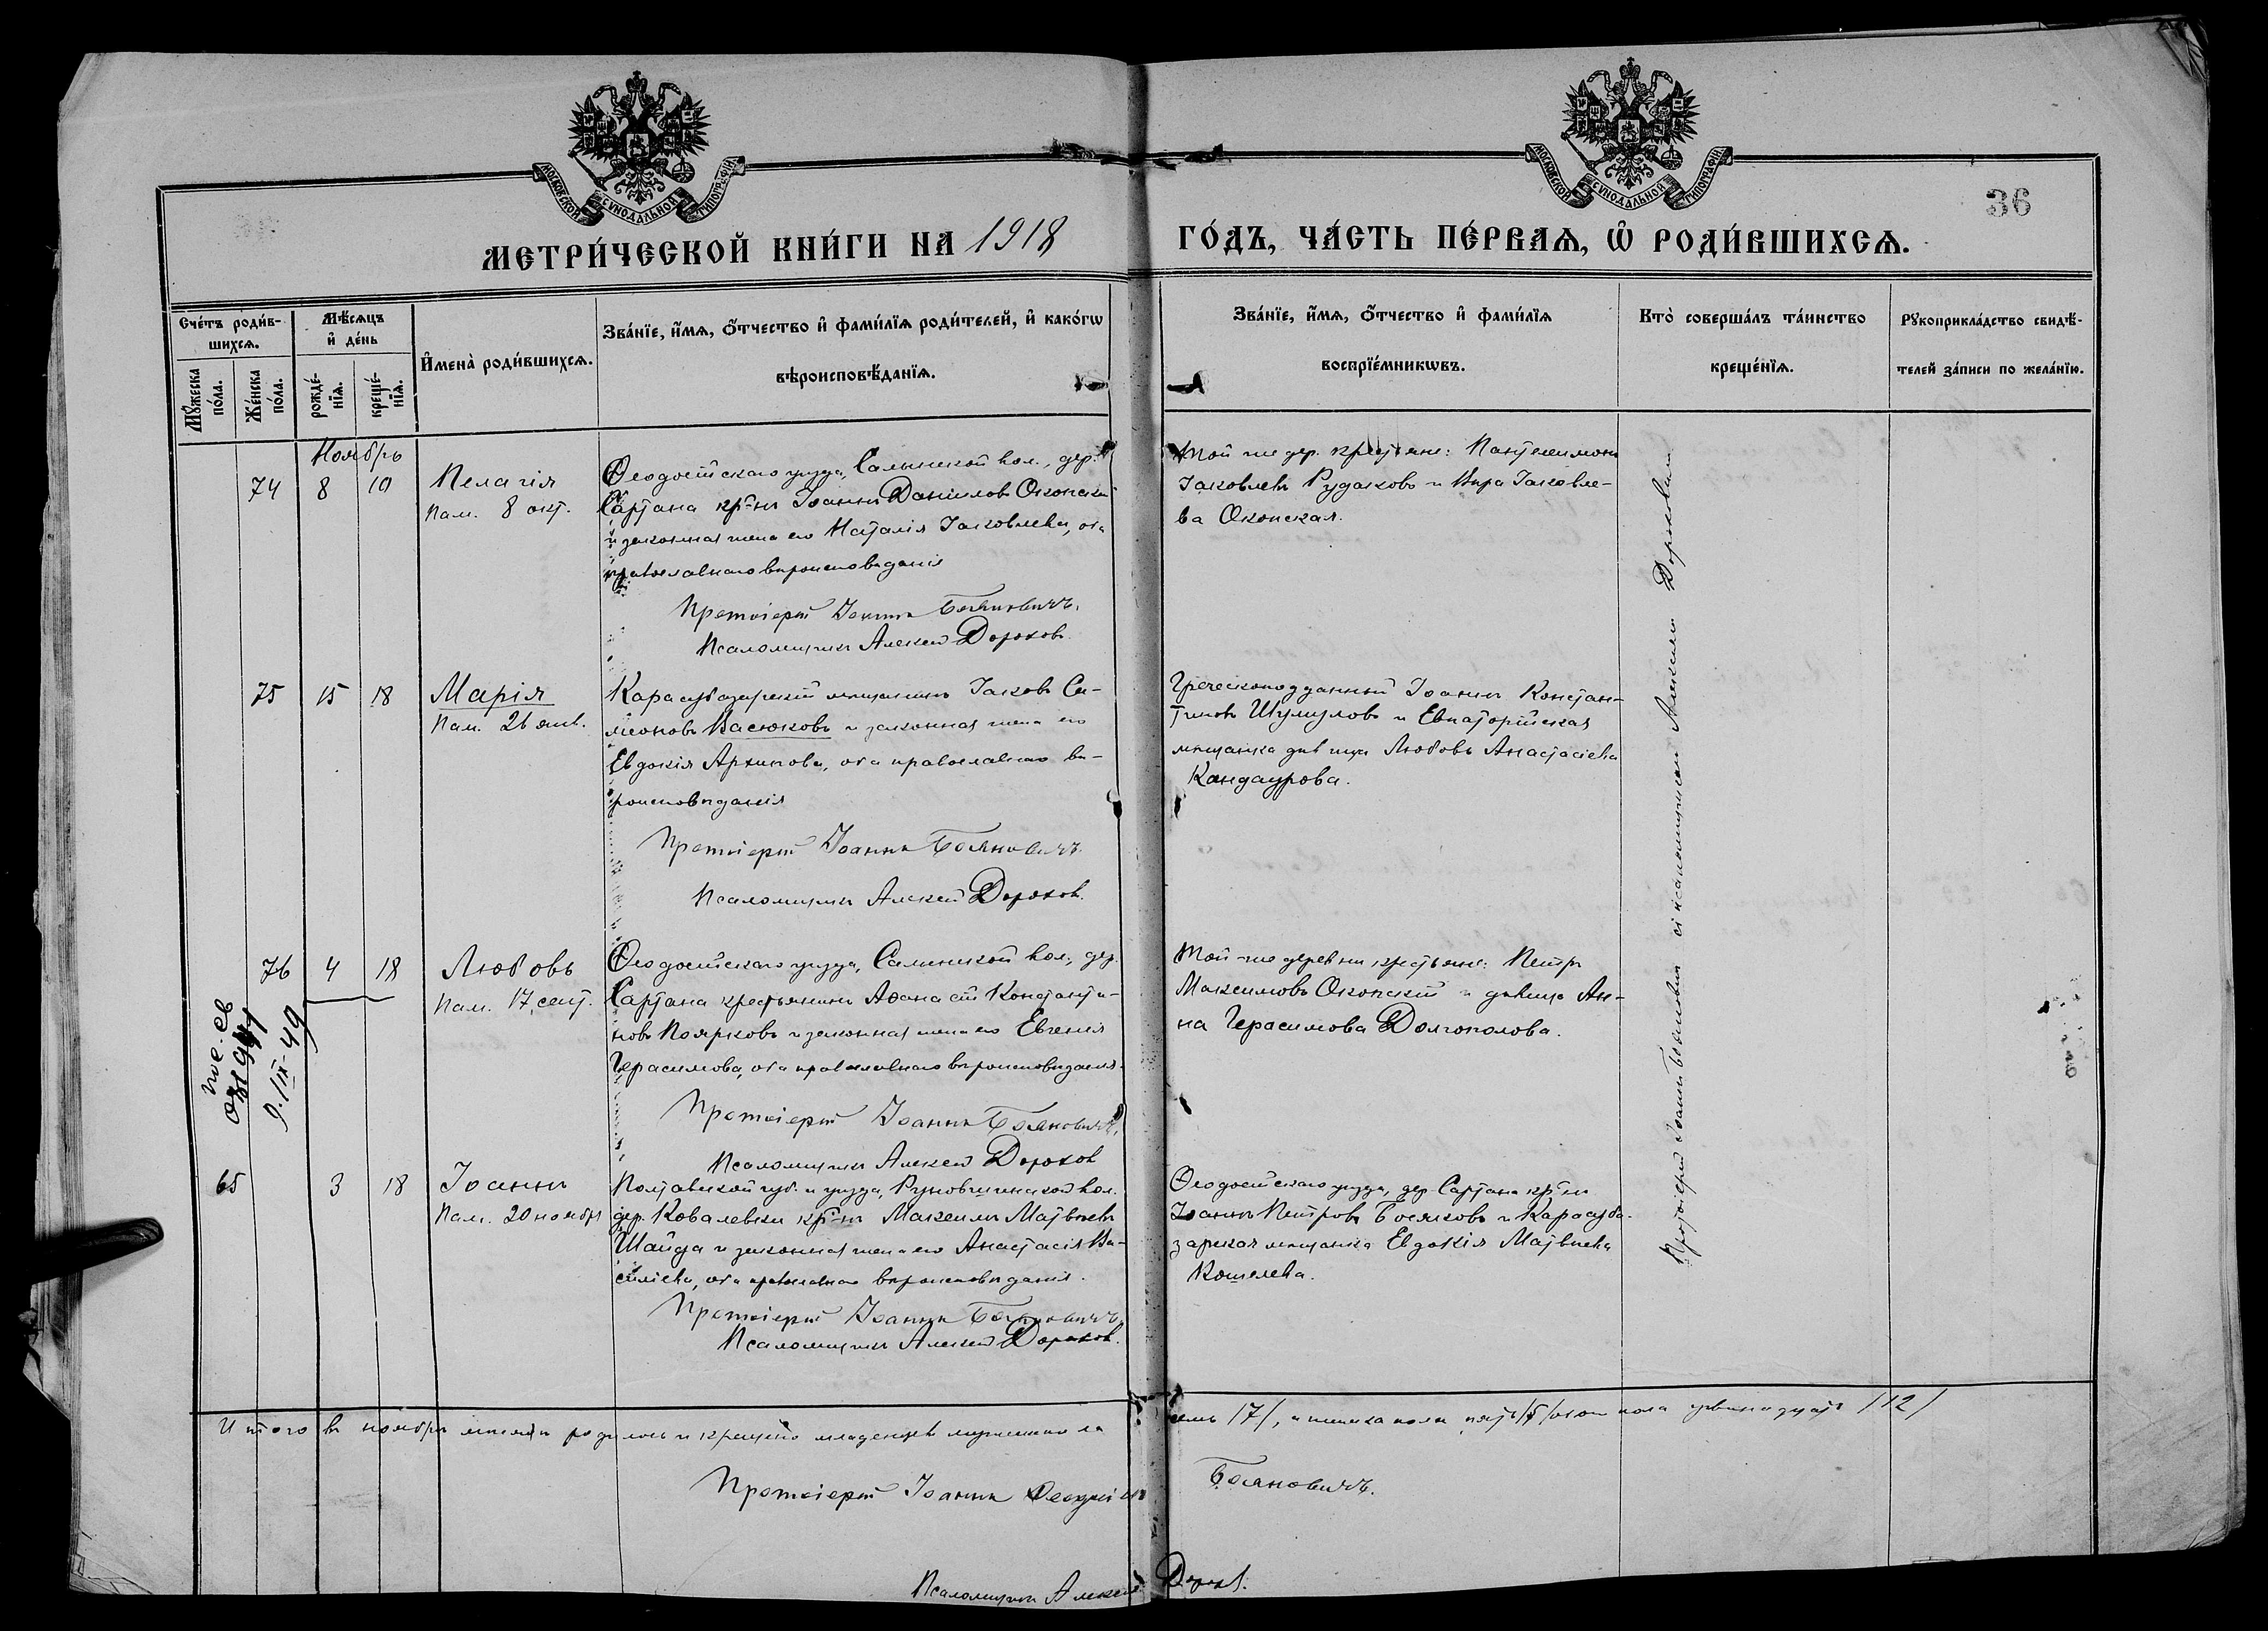 МОСКОВСКОЙ СѴНОДАЛЬНОЙ ТИПОГРАФІИ
МОСКОВСКОЙ СѴНОДАЛЬНОЙ ТИПОГРАФІИ
36
МЕТРИ́ЧЕСКОЙ КНИ́ГИ НА 1918
ГО́ДЪ, ЧА́СТЬ ПЕ́РВАѦ, Ѽ РОДИ́ВШИХСѦ.
Сче́тъ роди́в-
шихсѧ.
Мꙋ́жеска по́ла.
Же́нска по́ла.
Мѣ́сѧцъ и҆ де́нь
рожде́-нїѧ.
креще́-нїѧ.
И҆мена̀ роди́вшихсѧ.
Зва́нїе, и҆́мѧ, ѻ҆́тчество и҆ фами́лїѧ роди́телей, и҆ како́гѡ
вѣроисповѣ́данїѧ.
Зва́нїе, и҆́мѧ, ѻ҆́тчество и҆ фами́лїѧ
воспрїе́мникѡвъ.
Кто̀ соверша́лъ та́инство
креще́нїѧ.
Рꙋкоприкла́дство свидѣ́-
телей за́писи по жела́нїю.
Ноябрь
74 8 19 Пелагія
Пам. 8 окт.
Ѳеодосійскаго уѣзда, Салынской вол., дер.
Сартана кр-нъ Іоаннъ Даніиловъ Оконскій
и законная жена его Наталія Іаковлева, оба
православнаго вѣроисповѣданія
Протоіерей Іоаннъ Бояновичъ.
Псаломщикъ Алексей Дорохов.
Той же дер. крестьяне: Пантелеимонъ
Іаковлевъ Рудаковъ и Вѣра Іаковле-
ва Оконская.
75 15 18 Марія
Пам. 26 янв.
Карасубазарскій мѣщанинъ Іаковъ Си-
меоновъ Васюковъ и законная жена его
Евдокія Архипова, оба православнаго вѣ-
роисповѣданія
Протоіерей Іоаннъ Бояновичъ.
Псаломщикъ Алексей Дорохов.
Греческоподданный Іоаннъ Констан-
тиновъ Шумуловъ и Евпаторійская
мѣщанка дѣвица Любовь Анастасіева
Кандаурова.
76 4 18 Любовь
Пам. 17 сент.
Ѳеодосійскаго уѣзда, Салынской вол., дер.
Сартана крестьянинъ Аѳанасій Константи-
новъ Поярковъ и законная жена его Евгенія
Герасимова, оба православнаго вѣроисповѣданія.
Протоіерей Іоаннъ Бояновичъ.
Псаломщикъ Алексей Дорохов
Той же деревни крестьяне: Петръ
Максимовъ Оконскій и дѣвица Ан-
на Герасимова Долгополова.
9.IX-49
65 3 18 Іоаннъ
Пам. 20 ноября
Полтавской губ. и уѣзда, Руновщинской вол.
дер. Ковалевки кр-нъ Максимъ Матвѣевъ
Шайда и законная жена его Анастасія Ва-
силіева, оба православнаго вѣроисповѣданія.
Протоіерей Іоаннъ Бояновичъ.
Псаломщикъ Алексей Дорохов.
Ѳеодосійскаго уѣзда, дер. Сартана кр-нъ
Іоаннъ Петровъ Босяковъ и Карасуба-
зарская мѣщанка Евдокія Матвѣева
Кошелева.
Протоіерей Іоаннъ Бояновичъ съ псаломщикомъ Алексіемъ Дороховымъ
Итого въ ноябрѣ мѣсяцѣ родилось и крещено младенцевъ мужескаго пола
семь /7/, и женска пола пять /5/ обоего пола двѣнадцать /12/
Протоіерей Іоаннъ Ѳеодосіевъ Бояновичъ.
Псаломщикъ Алексей Дорохов.